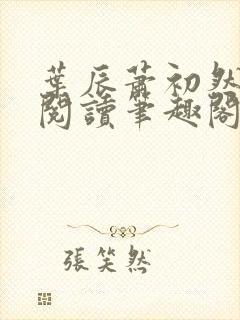 葉辰蕭初然
閱讀筆趣閣
張笑然